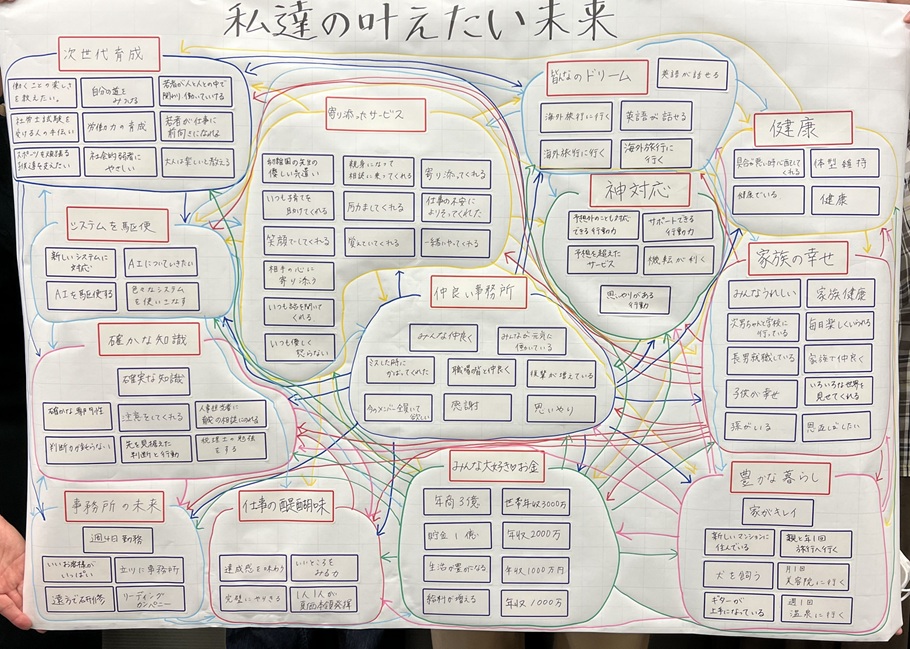 私達の叶えたい未来
次世代育成
働くことの楽しさ
を教えたい。
自分の道を
みつける
若者が人と人との中で
関わり働いていける
社労士試験を
受ける人の手伝い
労働力の育成
若者が仕事に
前向きになれる
スポーツを頑張る
社会的弱者に
やさしい
大人は楽しいと教える
寄り添ったサービス
優しい気遣い
親身になって
相談に乗ってくれる
寄り添ってくれる
いつも子育てを
助けてくれる
励ましてくれる
仕事の不安に
よりそってくれた
笑顔でしてくれる
覚えていてくれる
一緒にやってくれる
相手の心に
寄り添う
いつも話を聞いて
くれる
いつも優しく
怒らない
皆んなのドリーム
英語が話せる
海外旅行に行く
英語が話せる
海外旅行に行く
海外旅行に
行く
健康
具合が悪い時心配して
くれる
体型維持
健康でいる
健康
神対応
予想外のことも対応
できる行動力
サポートできる
行動力
予想を超えた
サービス
機転が利く
思いやりがある
行動
システムを駆使
新しいシステムに
対応
AIについていきたい
AIを駆使する
色々なシステム
を使いこなす
仲良い事務所
みんな仲良く
みんなが元気に
働いている
ミスした時に
かばってくれた
職場の皆と仲良く
後輩が増えている
今のメンバー全員いて
欲しい
感謝
思いやり
家族の幸せ
みんなうれしい
家族健康
次男ちゃんと学校に
行っている
毎日楽しくいられる
長男就職している
家族で仲良く
子供が幸せ
いろいろな世界を
見せてくれる
孫がいる
恩返しがしたい
確かな知識
確実な知識
確かな専門性
注意をしてくれる
人事担当者に
判断力が鈍らない
先を見据えた
判断と行動
税理士の勉強
をする
事務所の未来
週4日勤務
いいお客様が
いっぱい
立川に事務所
違う所で研修
リーディング
カンパニー
仕事の醍醐味
達成感を味わう
いいところを
みる力
完璧にやりきる
1人1人が
真価本領発揮
みんな大好き♡お金
年商3億
世帯年収3000万
貯金1億
年収2000万
生活が豊かになる
年収1000万円
給料が増える
年収1000万
豊かな暮らし
家がキレイ
新しいマンションに
住んでいる
親と年1回
旅行へ行く
犬を飼う
月1回
美容院に行く
ギターが
上手になっている
週1回
温泉に行く